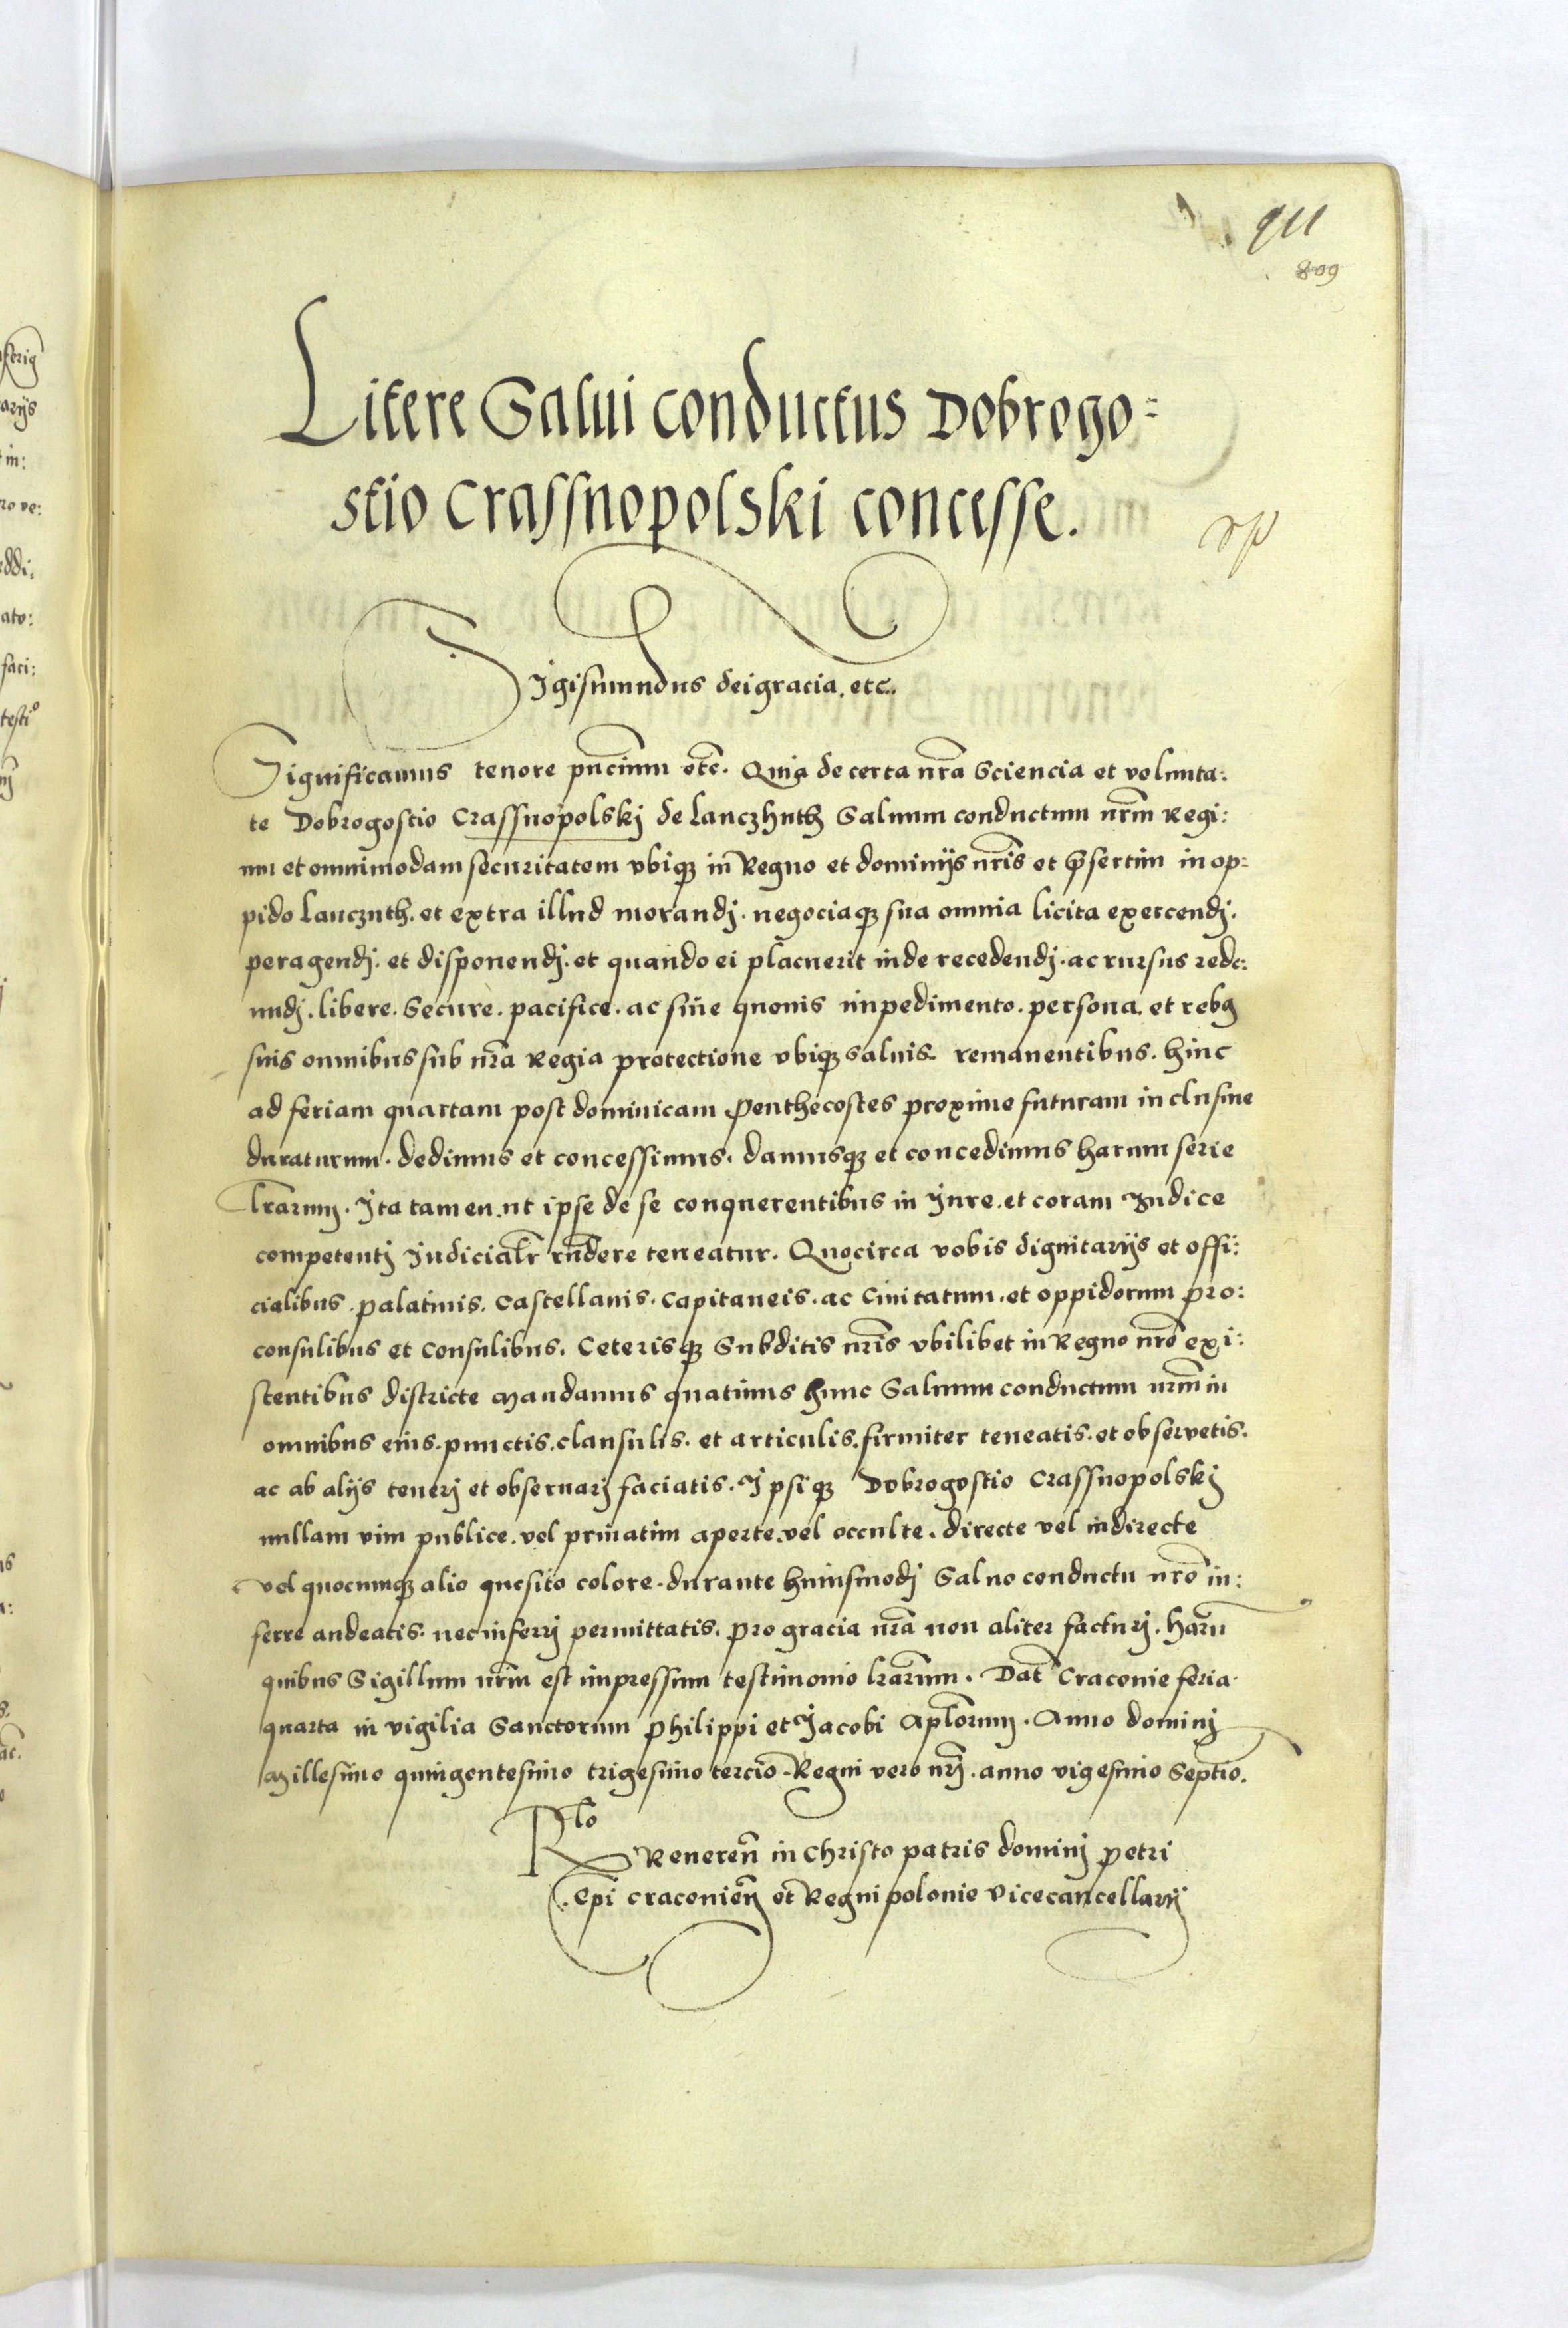 911
809
Litere Salui conductus Dobrogo=
stio Crassnopolski concesse.
Sigismundus dei gracia. etc.
Significamus tenore pñcium etc̃. Quia de certa nr̃a Sciencia et volunta:
te Dobrogostio Crassnopolskj de Lanczhuth Saluum conductum nr̃m Regi:
um et omnimodam securitatem vbiqꝫ in Regno et dominijs nr̃is et p̃sertim in op:
pido Lancznth. et extra illud morandj. negociaqꝫ sua omnia licita exercendj.
peragendj. et disponendj. et quando ei placuerit inde recedendj. ac rursus rede:
undj. libere. Secure. pacifice. ac sine quouis impedimento. persona. et rebꝰ
suis omnibus sub nr̃a Regia protectione vbiqꝫ saluis. remanentibus. hinc
ad feriam quartam post dominicam Penthecostes proxime futuram inclusiue
duraturum. dedimus et concessimus. damusqꝫ et concedimus harum serie
lr̃arum. Ita tamen. ut ipse de se conquerentibus in Jure. et coram Judice
competentj Judicialr̃ rñdere teneatur. Quocirca vobis dignitarijs et offi:
cialibus. palatinis. Castellanis. Capitaneis. ac Ciuitatum. et oppidorum pro:
consulibus et Consulibus. Ceterisqꝫ Subditis nr̃is vbilibet in Regno nr̃o exi:
stentibus districte Mandamus quatinus hunc Saluum conductum nr̃m in
omnibus eius. punctis. clausulis. et articulis. firmiter teneatis. et obseruetis.
ac ab alijs tenerj et obseruarj faciatis. Ipsiqꝫ Dobrogostio Crassnopolskj
nullam vim publice. vel priuatim aperte. vel occulte. directe vel indirecte
vel quocumqꝫ alio quesito colore. durante huiusmodj Saluo conductu nr̃o in:
ferre audeatis. nec inferrj permittatis. pro gracia nr̃a non aliter facturj. harũ
quibus Sigillum nr̃m est impressum testimonio lr̃arum. Dat̃ Craconie feria.
quarta in vigilia Sanctorum Philippi et Jacobi Apl̃orum. Anno dominj
Millesimo quingentesimo trigesimo tercio. Regni vero nr̃j. anno vigesimo Septĩo.
Rlo
Reueren̄ in Christo patris dominj Petri
Ep̃i Craconien̄ et Regni polonie Vicecancellarij